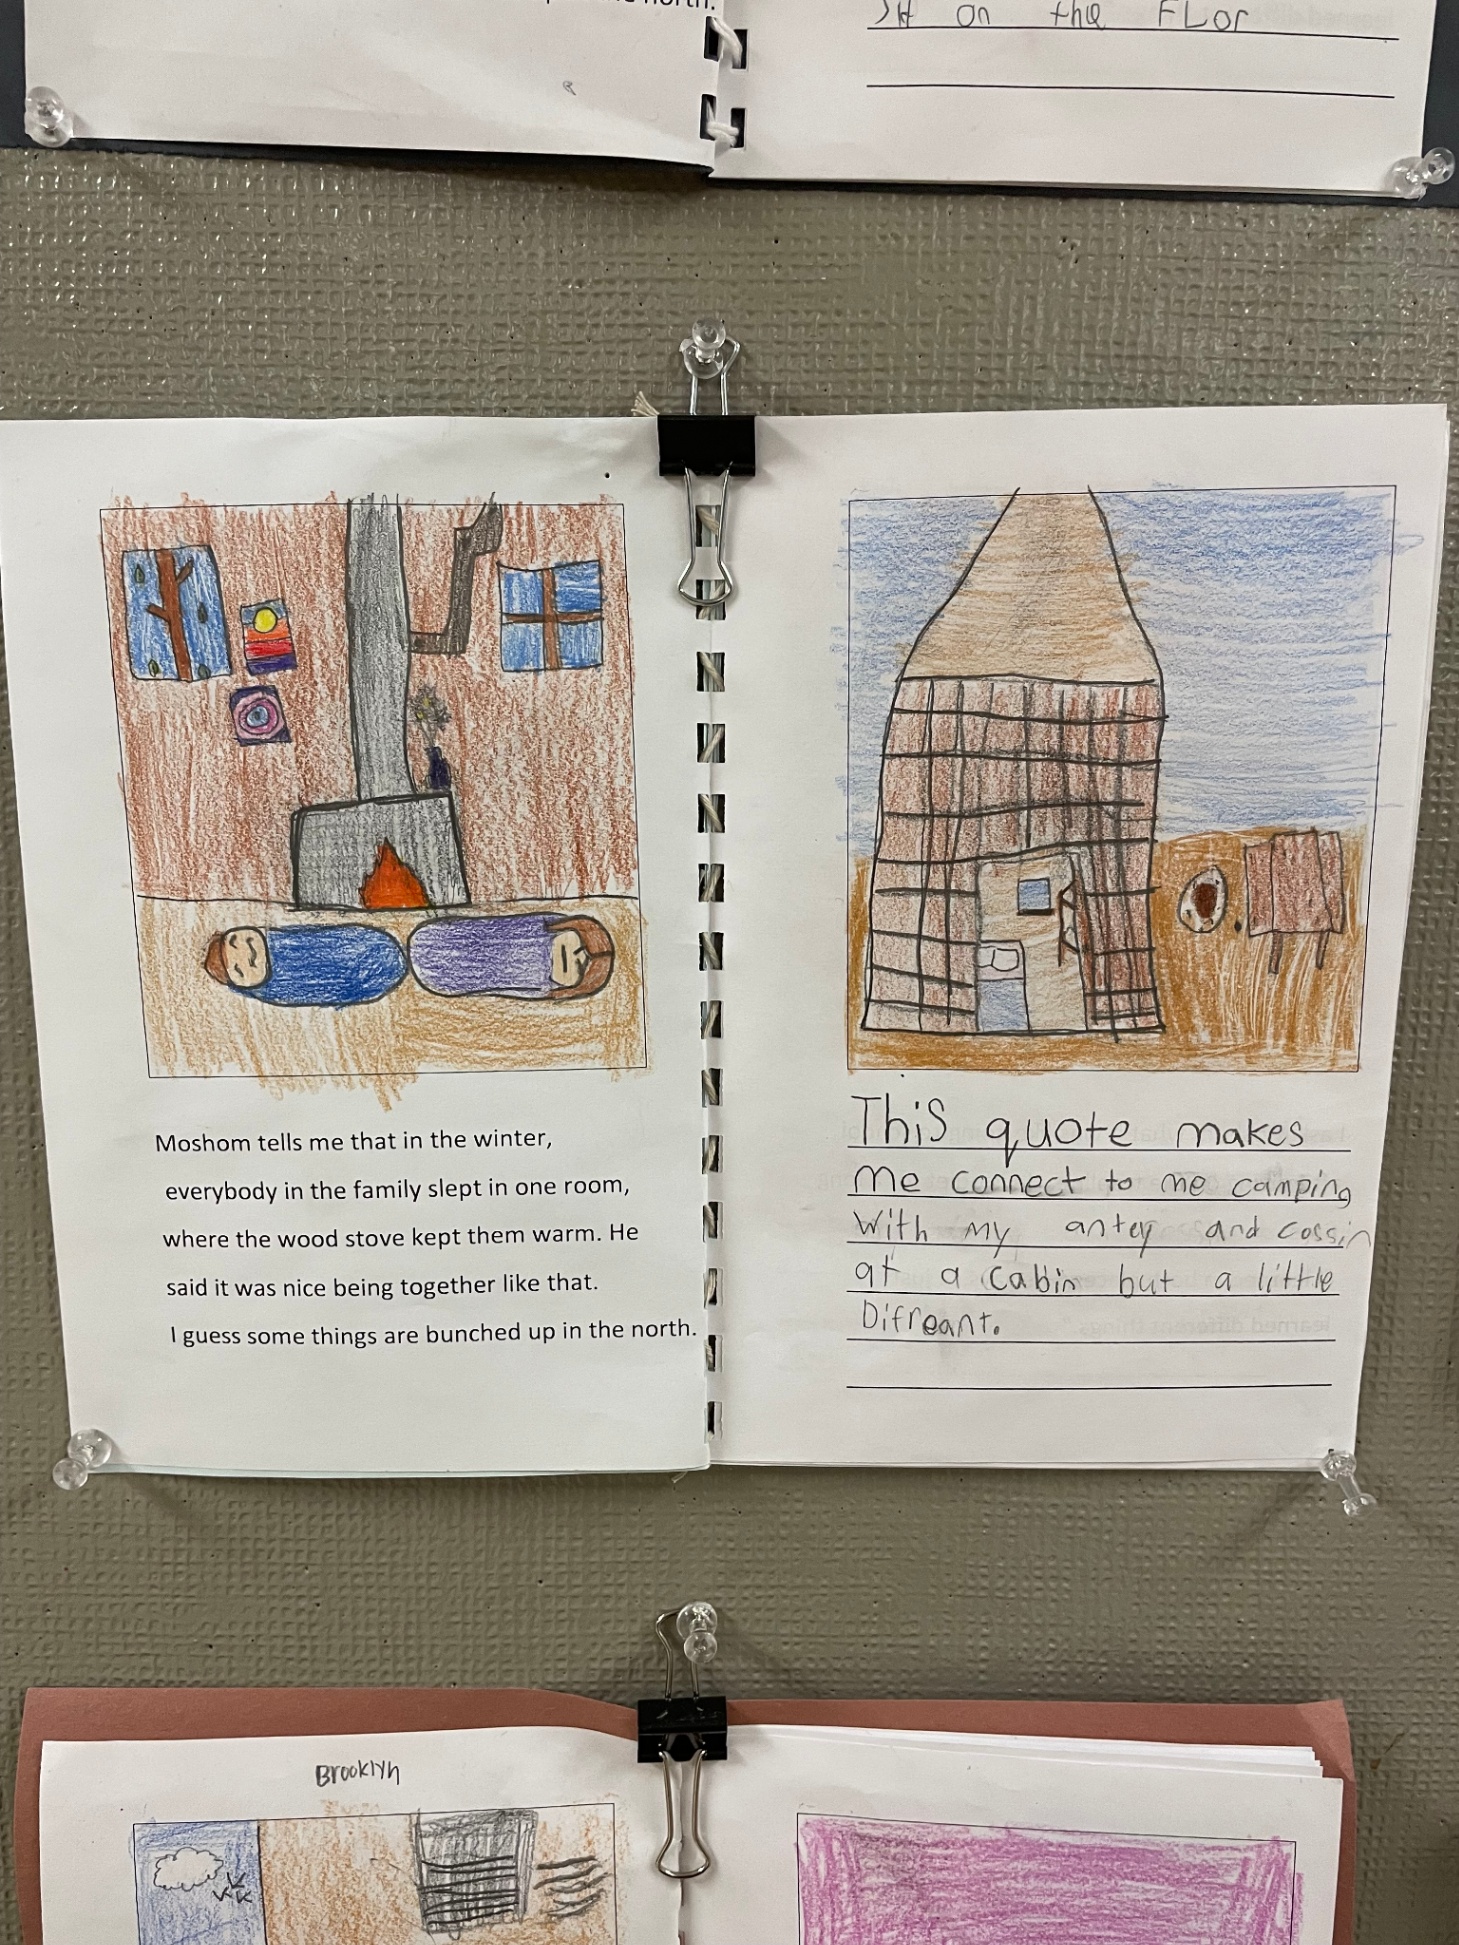 north.
on the FLor
Moshom tells me that in the winter,
everybody in the family slept in one room,
where the wood stove kept them warm. He
said it was nice being together like that.
I guess some things are bunched up in the north.
This quote makes
me connect to me camping
with my antey and cossin
at a cabin but a little
Difreant.
Brooklyn